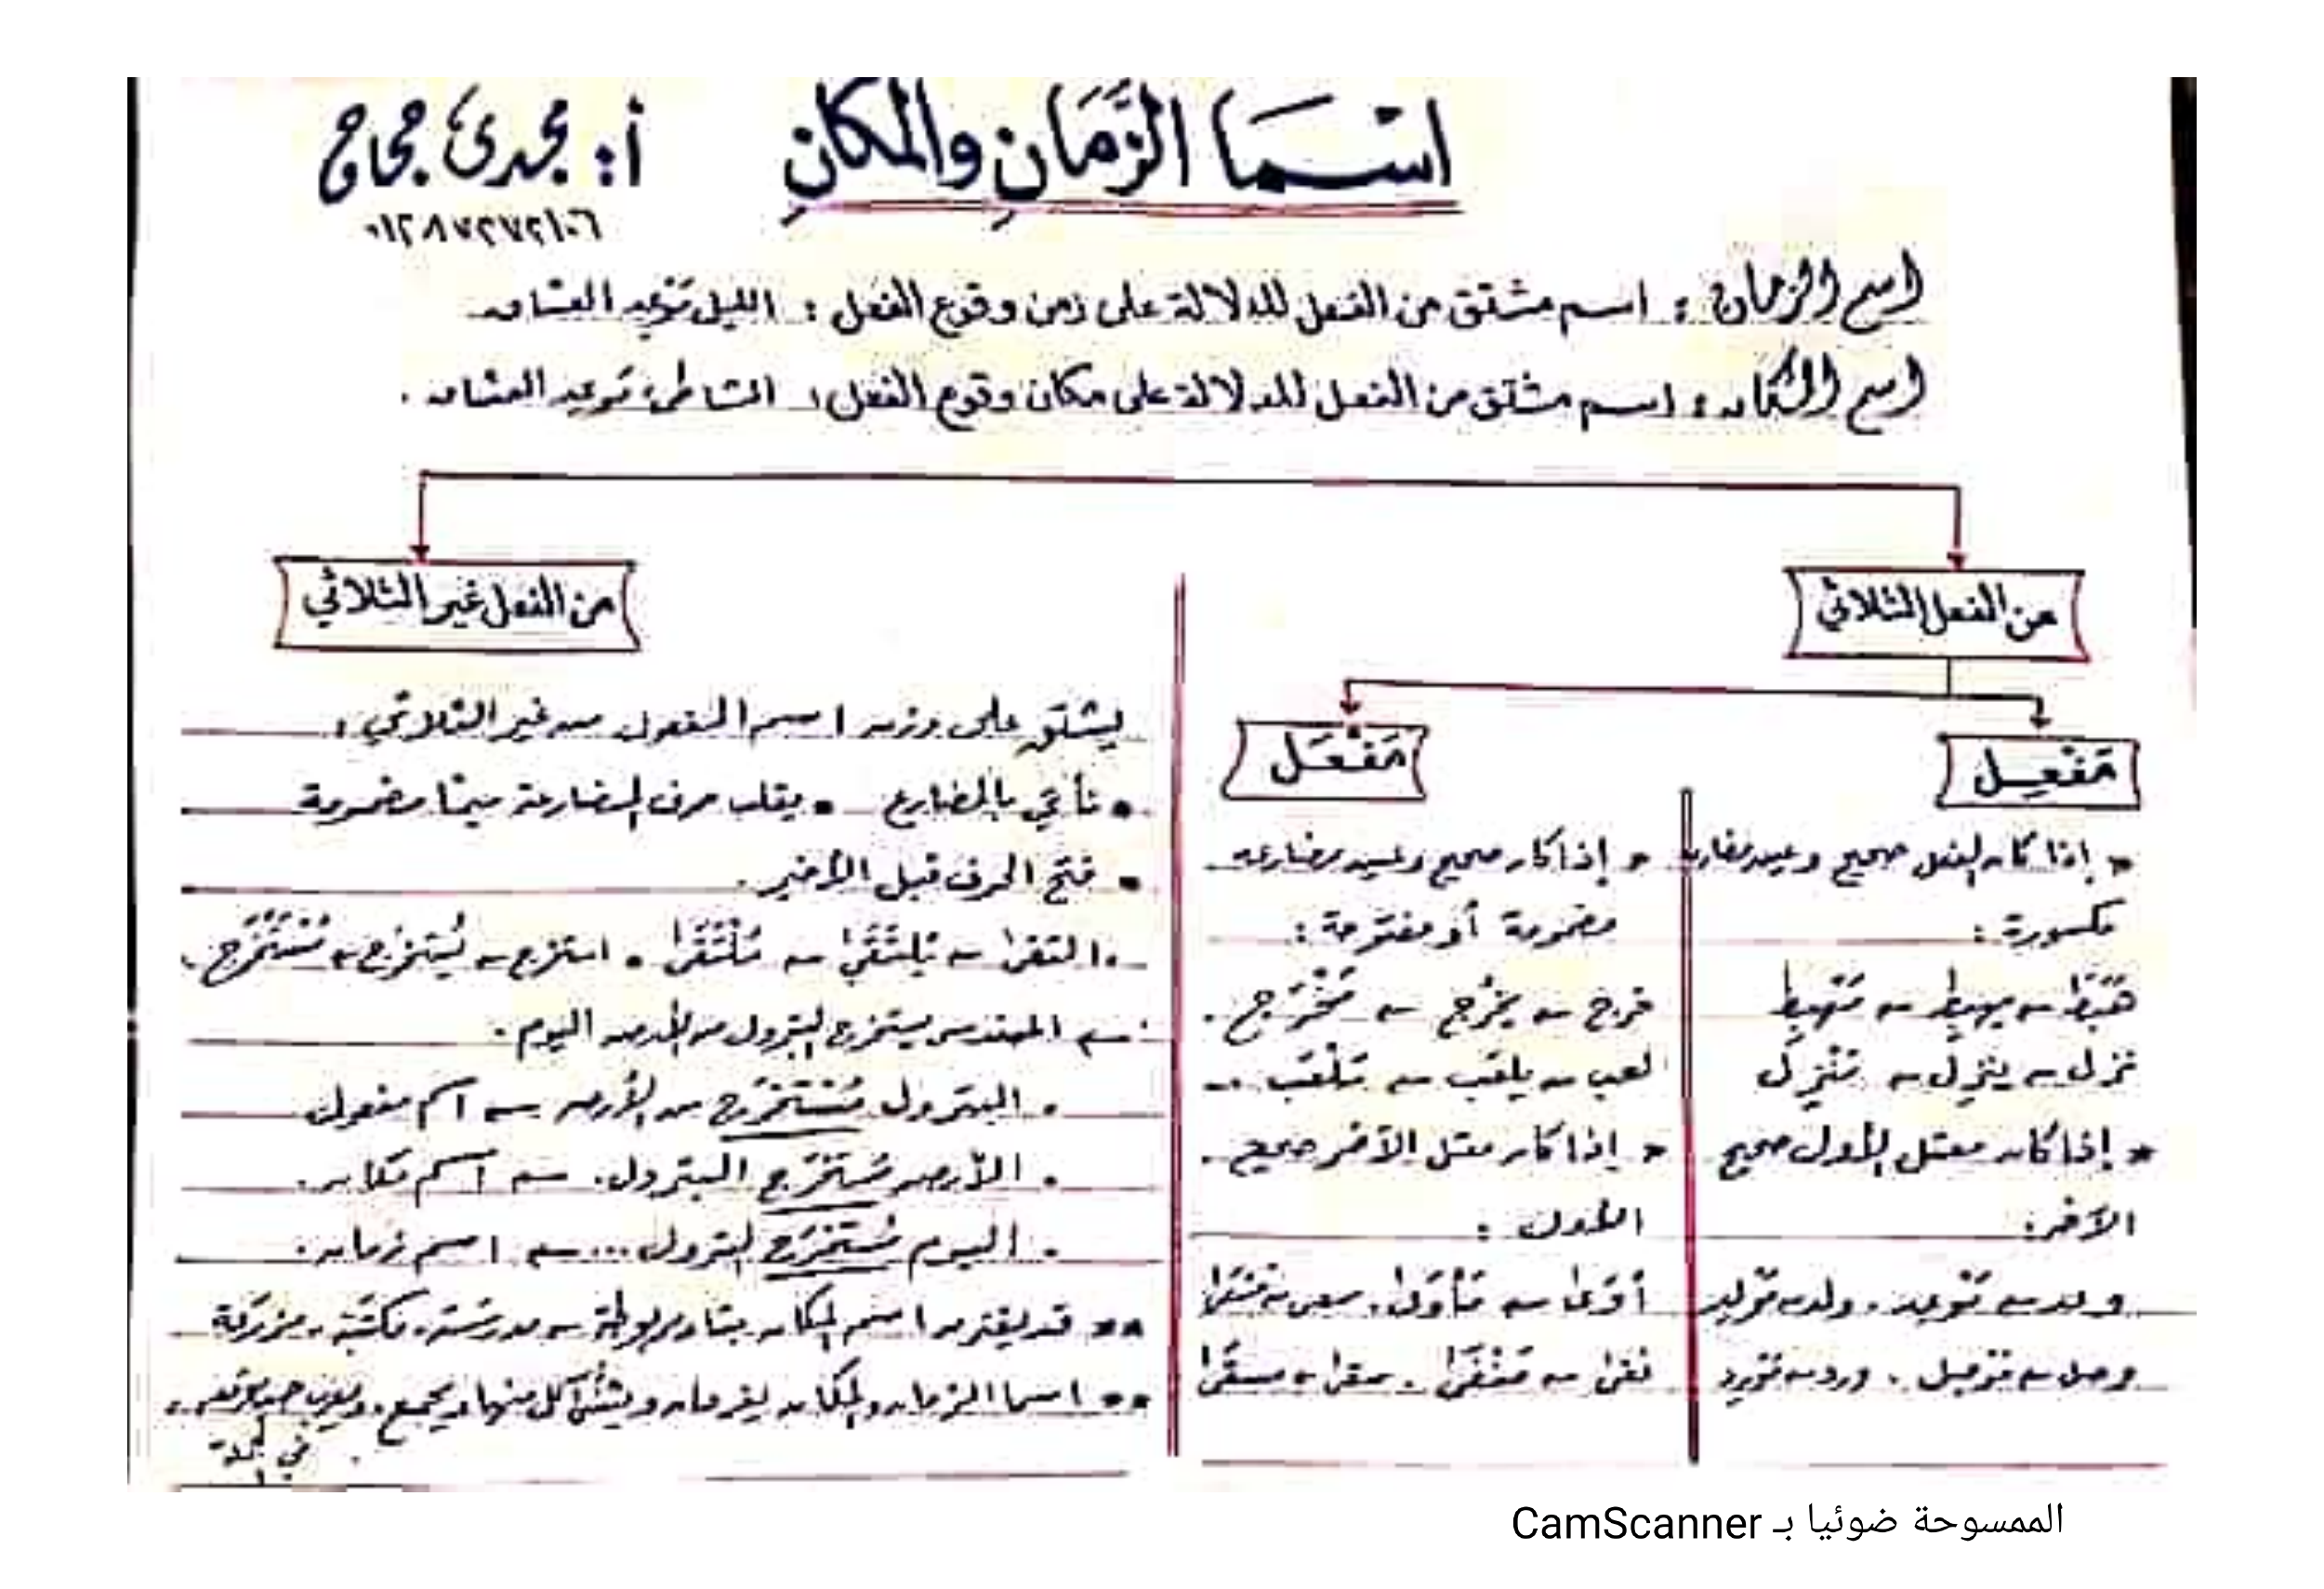 اسْمَا الزَّمَانِ والمكانِ
أ: مجدى حجاج
٠١٢٨٧٢٧٢١٠٦
اسم الزمان : اسم مشتق من الفعل للدلالة على زمن وقوع الفعل : الليل مَوْعِد العشاق
اسم المكان : اسم مشتق من الفعل للدلالة على مكان وقوع الفعل : الشاطئ مَوعِد العشاق .
من الفعل الثلاثي
مَفْعِل
* إذا كان الفعل صحيح وعين مضارعه
مكسورة :
هَبَطَ ← يهبِط ← مَهْبِط
نزل ← ينزِل ← مَنْزِل
* إذا كان معتل الأول صحيح
الآخر :
وعد ← مَوْعِد . ولد ← مَوْلِد
وصل ← مَوْصِل . ورد ← مَوْرِد
مَفْعَل
* إذا كان صحيح وعين مضارعه
مضمومة أو مفتوحة :
خرج ← يخرُج ← مَخْرَج .
لعب ← يلعَب ← مَلْعَب ..
* إذا كان معتل الآخر صحيح
الأول :
أوَى ← مَأْوَى . سعى ← مَسْعَى
نفى ← مَنْفَى . سقى ← مسقَى
من الفعل غير الثلاثي
يشتق على وزن اسم المفعول من غير الثلاثي :
• نأتي بالمضارع • يقلب حرف المضارعة ميمًا مضمومة
• فتح الحرف قبل الأخير .
. التقى ← يَلتَقي ← مُلْتَقَى • استخرج ← يَستخرِج ← مُسْتَخْرَج .
← المهندس يستخرج البترول من الأرض اليوم .
. البترول مُسْتَخْرَج من الأرض ← اسم مفعول
. الأرض مُستَخْرَج البترول . ← اسم مكان .
. اليوم مُستَخْرَج البترول ... ← اسم زمان .
** قد يقترن اسم المكان بتاء مربوطة ← مدرسَة . مكتبَة . مزرَعة
** اسما الزمان والمكان يفردان ويثنَّى كل منهما ويجمع . ويعرب حسب موقعه
في الجملة .
الممسوحة ضوئيا بـ CamScanner